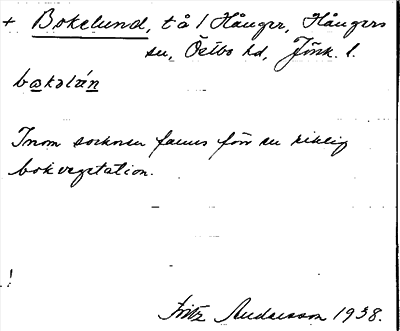 + Bokelund, t å / Hånger, Hångers
sn, Östbo hd, Jönk. l.
bokəlɯ́n
Inom socknen fanns förr en riklig
bokvegetation.
!
Fritz Andersson 1938.